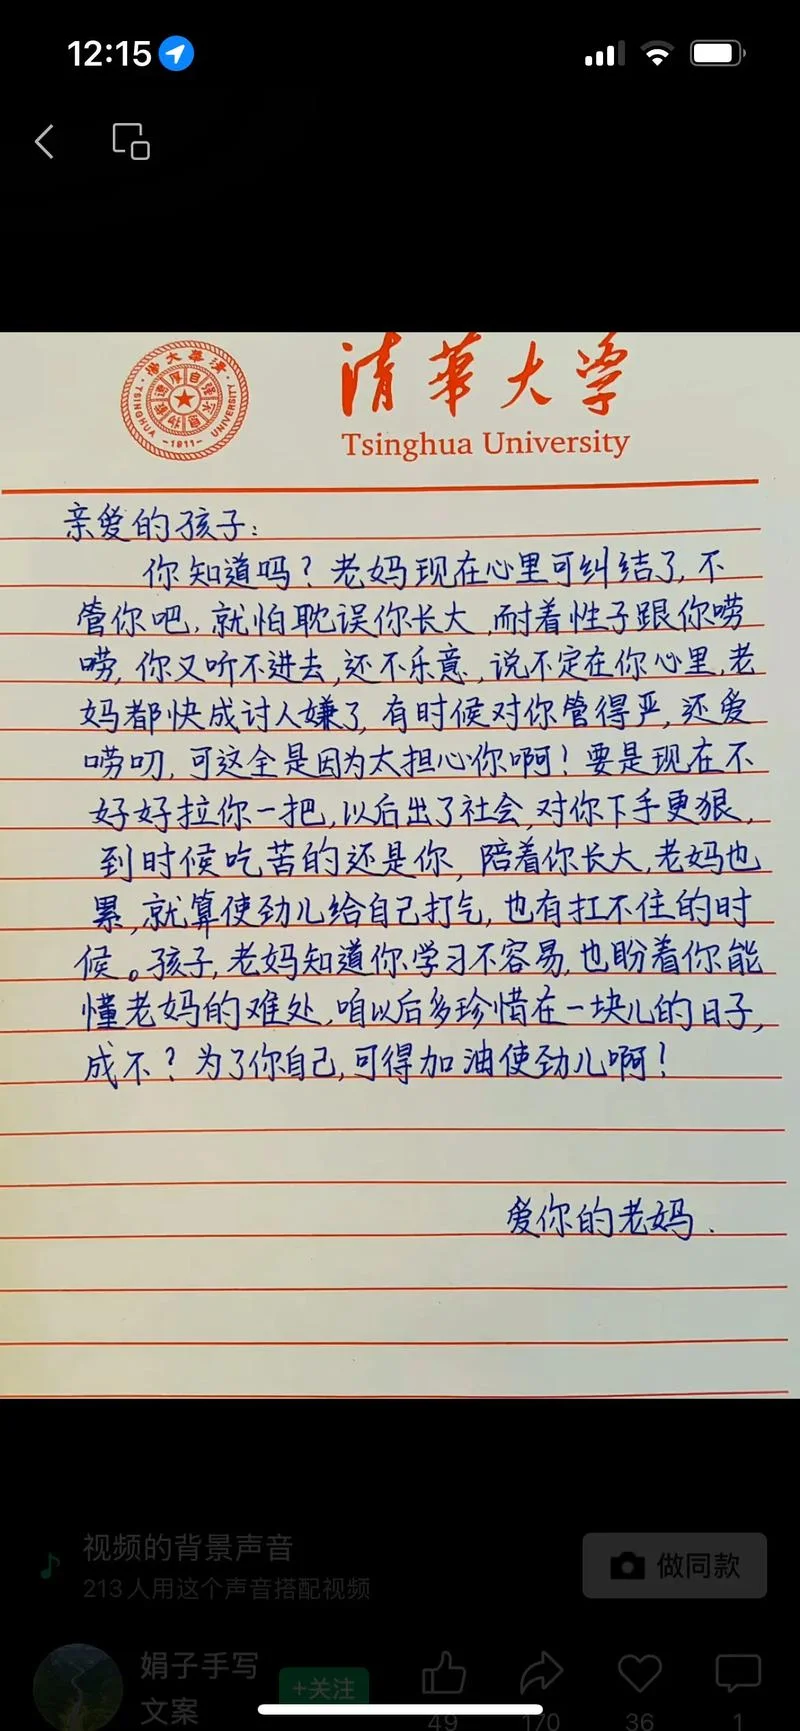 12:15
清華大学
Tsinghua University
TSINGHUA UNIVERSITY
-1911-
亲爱的孩子：
你知道吗？老妈现在心里可纠结了，不
管你吧，就怕耽误你长大，耐着性子跟你唠
唠，你又听不进去，还不乐意，说不定在你心里，老
妈都快成讨人嫌了，有时候对你管得严，还爱
唠叨，可这全是因为太担心你啊！要是现在不
好好拉你一把，以后出了社会，对你下手更狠，
到时候吃苦的还是你，陪着你长大，老妈也
累，就算使劲儿给自己打气，也有扛不住的时
候。孩子，老妈知道你学习不容易，也盼着你能
懂老妈的难处，咱以后多珍惜在一块儿的日子，
成不？为了你自己，可得加油使劲儿啊！
爱你的老妈.
视频的背景声音
213人用这个声音搭配视频
做同款
娟子手写
文案
+关注
49
170
36
1